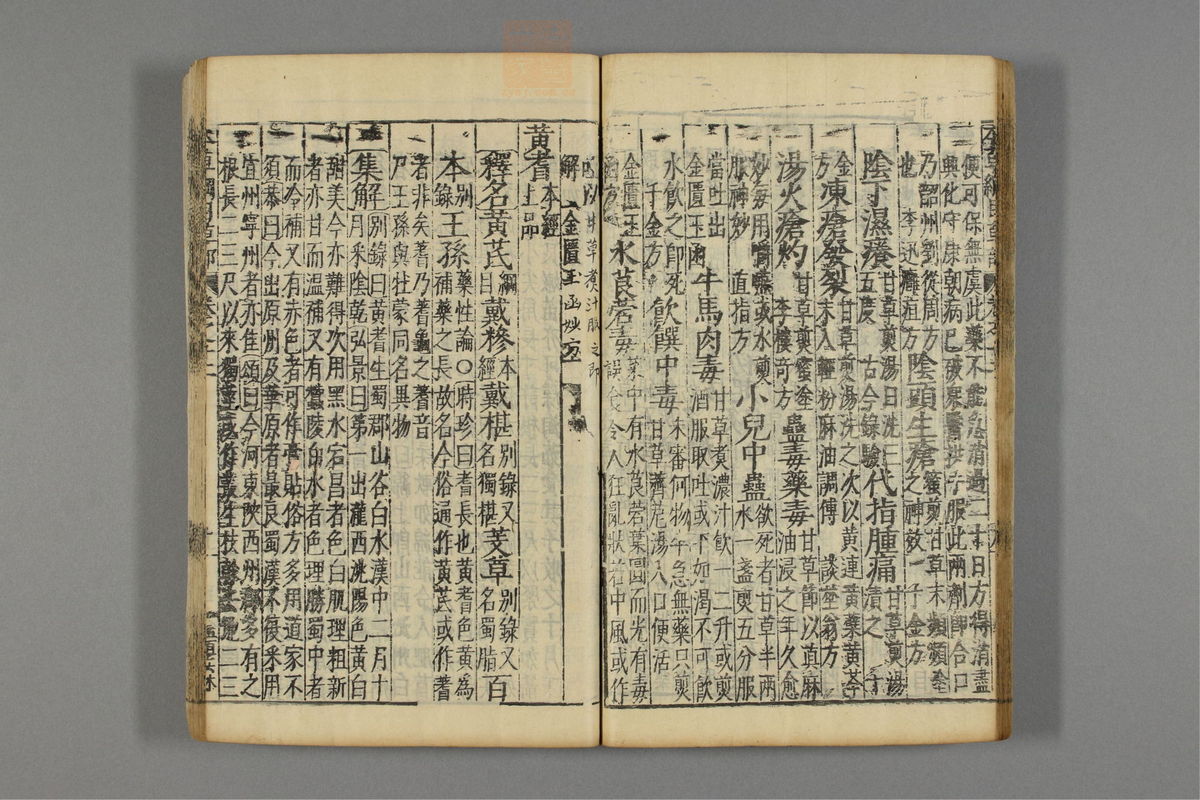 便可保無虞此藥不能急消過二十日方得消盡
興化守康朝病已破衆醫拱手服此兩劑即合口
乃韶州劉從周方也 李迅癰疽方 陰頭生瘡 蜜煎甘草末頻頻塗之神效 千金方
陰下濕癢 甘草煎湯日洗三五度 古今錄驗 代指腫痛 甘草煎湯漬之 千
金方 凍瘡發裂 甘草煎湯洗之次以黃連黃蘗黃芩末入輕粉麻油調傅 談埜翁方
湯火瘡灼 甘草煎蜜塗 李樓奇方 蠱毒藥毒 甘草節以真麻油浸之年久愈
妙每用嚼嚥或水煎服神妙 直指方 小兒中蠱 欲死者甘草半兩水一盞煎五分服
當吐出 金匱玉函 牛馬肉毒 甘草煮濃汁飲一二升或煎酒服取吐或下如渴不可飲
水飲之即死 千金方 飲饌中毒 未審何物卒急無藥只煎甘草薺苨湯入口便活
金匱玉函方 水莨菪毒 菜中有水莨菪葉圓而光有毒誤食令人狂亂狀若中風或作
吐以甘草煮汁服之即解 金匱玉函妙方
黃耆 本經上品
釋名 黃芪 綱目 戴糝 本經 戴椹 別錄又名獨椹 芰草 別錄又名蜀脂 百
本 別錄 王孫 藥性論○時珍曰耆長也黃耆色黃為補藥之長故名今俗通作黃芪或作蓍
者非矣蓍乃蓍龜之蓍音尸王孫與牡蒙同名異物
集解 別錄曰黃耆生蜀郡山谷白水漢中二月十月采陰乾弘景曰第一出隴西洮陽色黃白
甜美今亦難得次用黑水宕昌者色白肌理粗新
者亦甘而溫補又有蠶陵白水者色理勝蜀中者
而冷補又有赤色者可作膏貼俗方多用道家不
須恭曰今出原州及華原者最良蜀漢不復采用
宜州寧州者亦佳頌曰今河東陝西州郡多有之
根長二三尺以來獨莖或作叢生枝幹去地二三